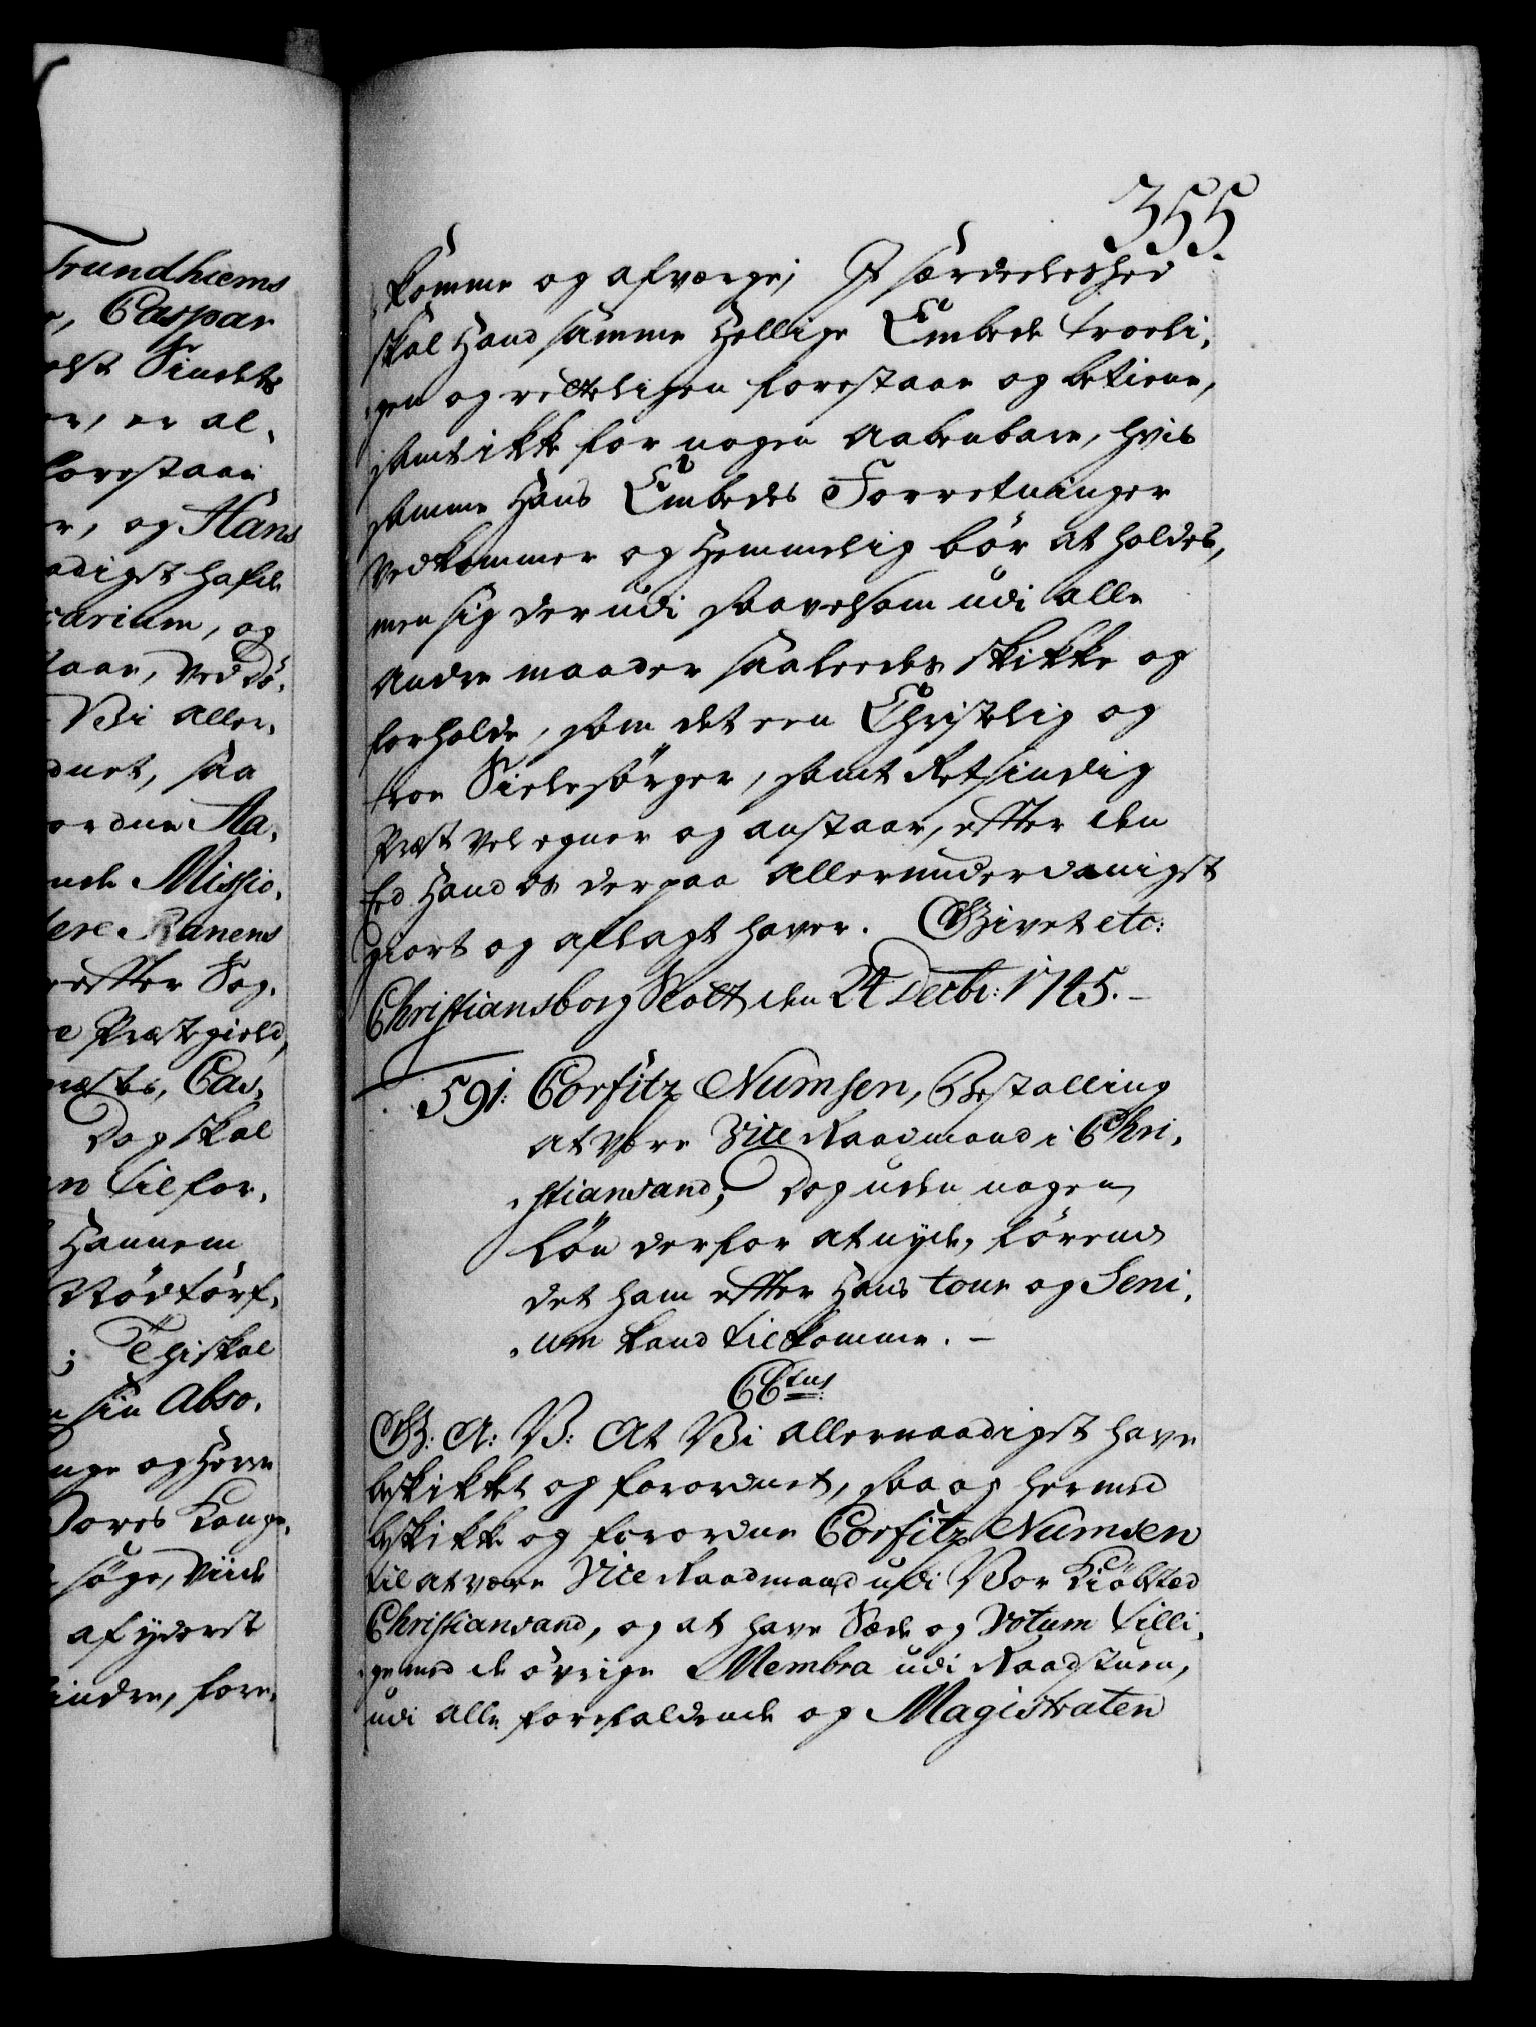 Trundhiems
, Caspar
Sindets
er, er al-
forestaar
r, og Hans
adigst hafde
carium, og
taar, ved dö-
Vi aller-
dnet, saa
ordne Aa-
nde Missio-
dere Ranens
effter Sog-
e Præstegield,
Præstes, Cas-
Dog skal
en tilfor-
Hannem
Nödtörf-
; Thi skal
n sin Abso-
nge og Herre
Vores Konge-
söge, viide
af yderst
hindre, fore-
355.
komme og afværge; I særdeleshed
skal Hand samme Hellige Embede troeli-
gen og retteligen forestaae og betiene,
samt ikke for nogen aabenbare, hvis
samme Hans Embedes Forretninger
vedkommer og Hemmelig bör at holdes,
men sig derudi saavelsom udi alle
andre maader saaledes skikke og
forholde, som det een Christelig og
troe Sielesörger, samt Retsindig
Præst vel egner og anstaar, effter den
Eed Hand os derpaa allerunderdanigst
giort og aflagt haver. Givet etc:
Christiansborg Slott den 24 Decbr: 1745. –
591: Corfitz Numsen, Bestalling
at være Vice Raadmand i Chri-
stiansand; Dog uden nogen
Lön derfor at nyde, förend
det ham effter Hans tour og Seni-
um kand tilkomme. –
CCtus
G: A: V: At Vi allernaadigst have
beskikket og forordnet, saa og hermed
beskikke og forordne Corfitz Numsen
til at være Vice Raadmand udi Vor Kiöbsted
Christiansand, og at have Sæde og Votum tilli-
ge med de övrige Membra udi Raadstuen,
udi alle forefaldende og Magistraten